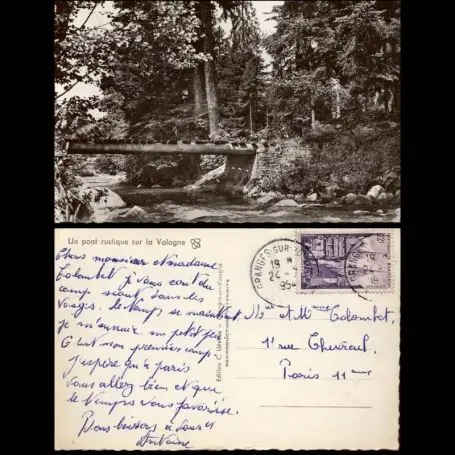 Un pont rustique sur la Vologne
Chers monsieur et madame
Colombet je vous écris du
camp scout dans les
Vosges. le temps se maintient
je m'ennuie un petit peu
C'est mon premier camp
J'espère qu'à Paris
vous allez bien et que
le temps vous favorise.
Bons baisers à vous
Antoine
GRANGES-SUR-V
19 H
24 -
195
Mr et Me Colombet,
1 rue Chevreul
Paris 11ème